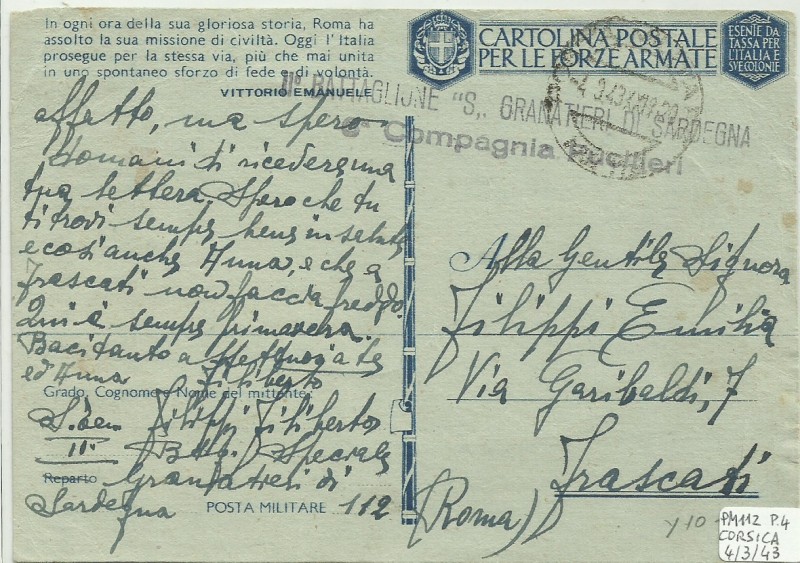 In ogni ora della sua gloriosa storia, Roma ha
assolto la sua missione di civiltà. Oggi l'Italia
prosegue per la stessa via, più che mai unita
in uno spontaneo sforzo di fede e di volontà.
VITTORIO EMANUELE
CARTOLINA POSTALE
PER LE FORZE ARMATE
ESENTE DA
TASSA PER
L'ITALIA E
SUE COLONIE
II° BATTAGLIONE "S„ GRANATIERI DI SARDEGNA
Compagnia Fucilieri
affetto, ma spero
domani di ricedere una
tua lettera. Spero che tu
ti trovi sempre bene in salute
e così anche Anna, e che a
Frascati non faccia freddo.
Qui è sempre primavera.
Baci tanto a te
ed Anna Filiberto
Grado, Cognome e Nome del mittente:
S. Ten Filippi Filiberto
II° Batt. Speciale
Reparto Granatieri di
Sardegna
POSTA MILITARE 112
Alla Gentile Signora
Filippi Emilia
Via Garibaldi, 7
Frascati
(Roma)
y 10
PM112 P.4
CORSICA
4/3/43